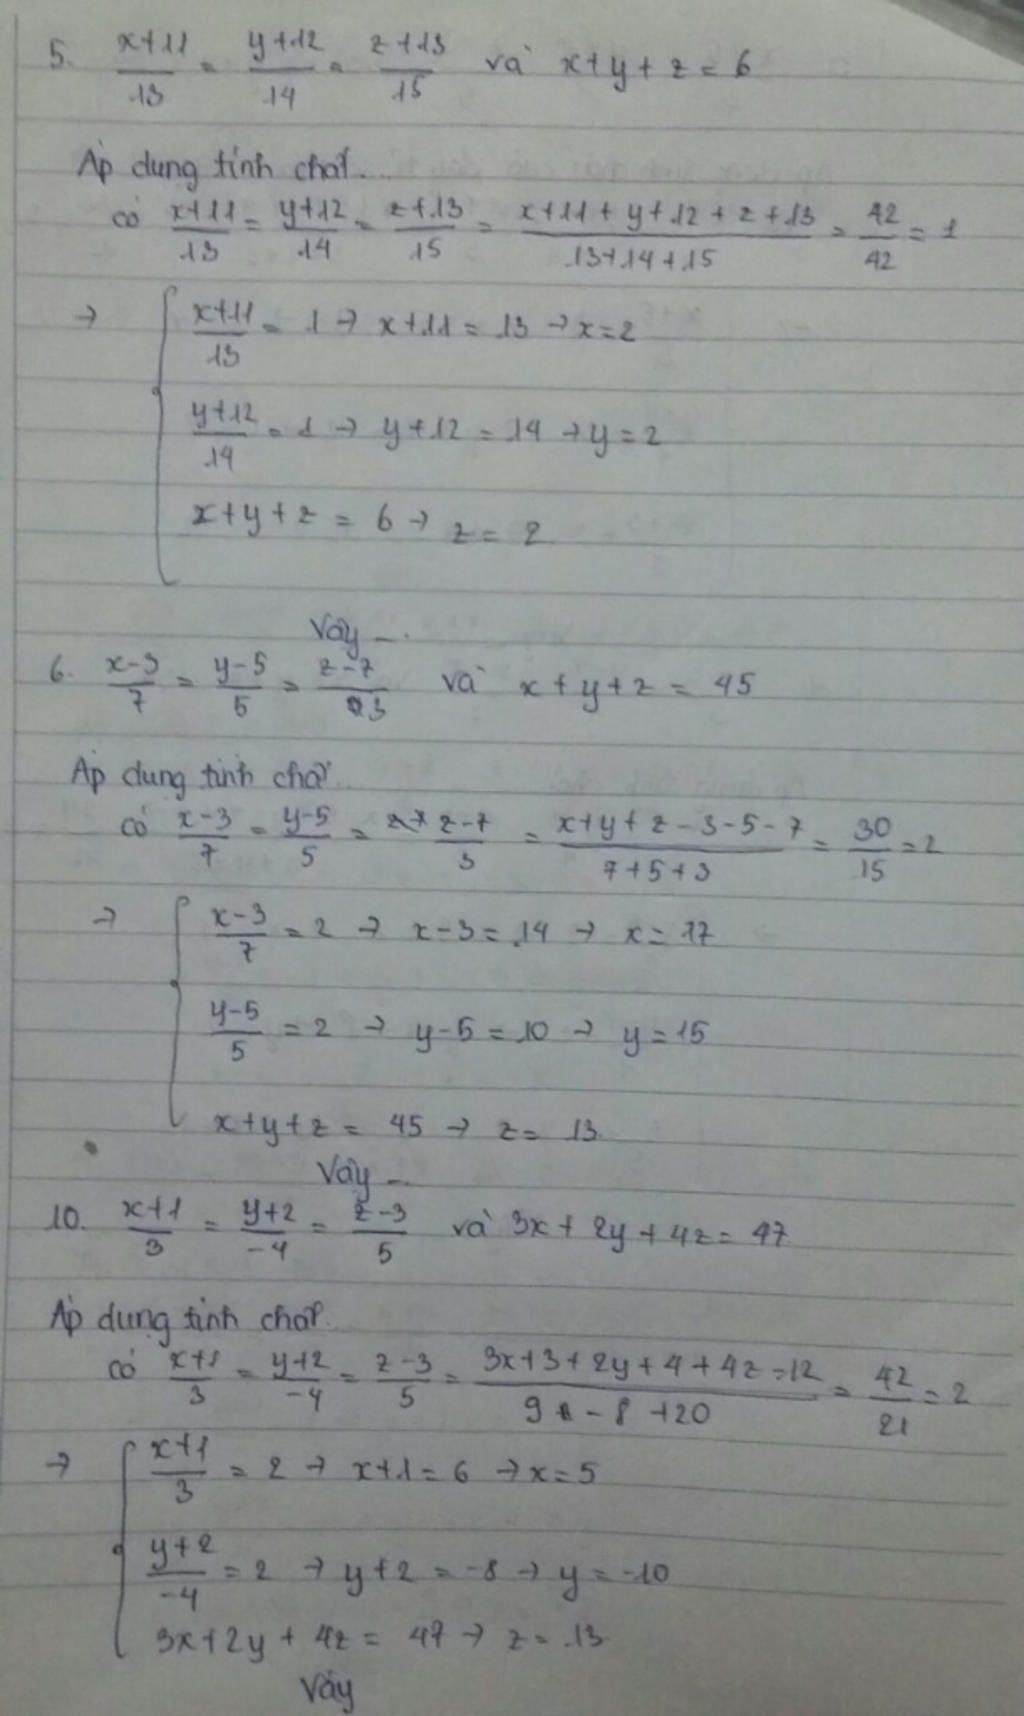 5. (x+11)/13 = (y+12)/14 = (z+13)/15 và x+y+z = 6
Áp dụng tính chất..
có (x+11)/13 = (y+12)/14 = (z+13)/15 = (x+11+y+12+z+13)/(13+14+15) = 42/42 = 1
→ { (x+11)/13 = 1 → x+11 = 13 → x=2
(y+12)/14 = 1 → y+12 = 14 → y=2
x+y+z = 6 → z = 2
Vậy ...
6. (x-3)/7 = (y-5)/5 = (z-7)/3 và x+y+z = 45
Áp dụng tính chất..
có (x-3)/7 = (y-5)/5 = (z-7)/3 = (x+y+z-3-5-7)/(7+5+3) = 30/15 = 2
→ { (x-3)/7 = 2 → x-3 = 14 → x = 17
(y-5)/5 = 2 → y-5 = 10 → y = 15
x+y+z = 45 → z = 13
Vậy ...
10. (x+1)/3 = (y+2)/-4 = (z-3)/5 và 3x+2y+4z = 47
Áp dụng tính chất..
có (x+1)/3 = (y+2)/-4 = (z-3)/5 = (3x+3+2y+4+4z-12)/(9-8+20) = 42/21 = 2
→ { (x+1)/3 = 2 → x+1 = 6 → x=5
(y+2)/-4 = 2 → y+2 = -8 → y = -10
3x+2y+4z = 47 → z = 13
Vậy